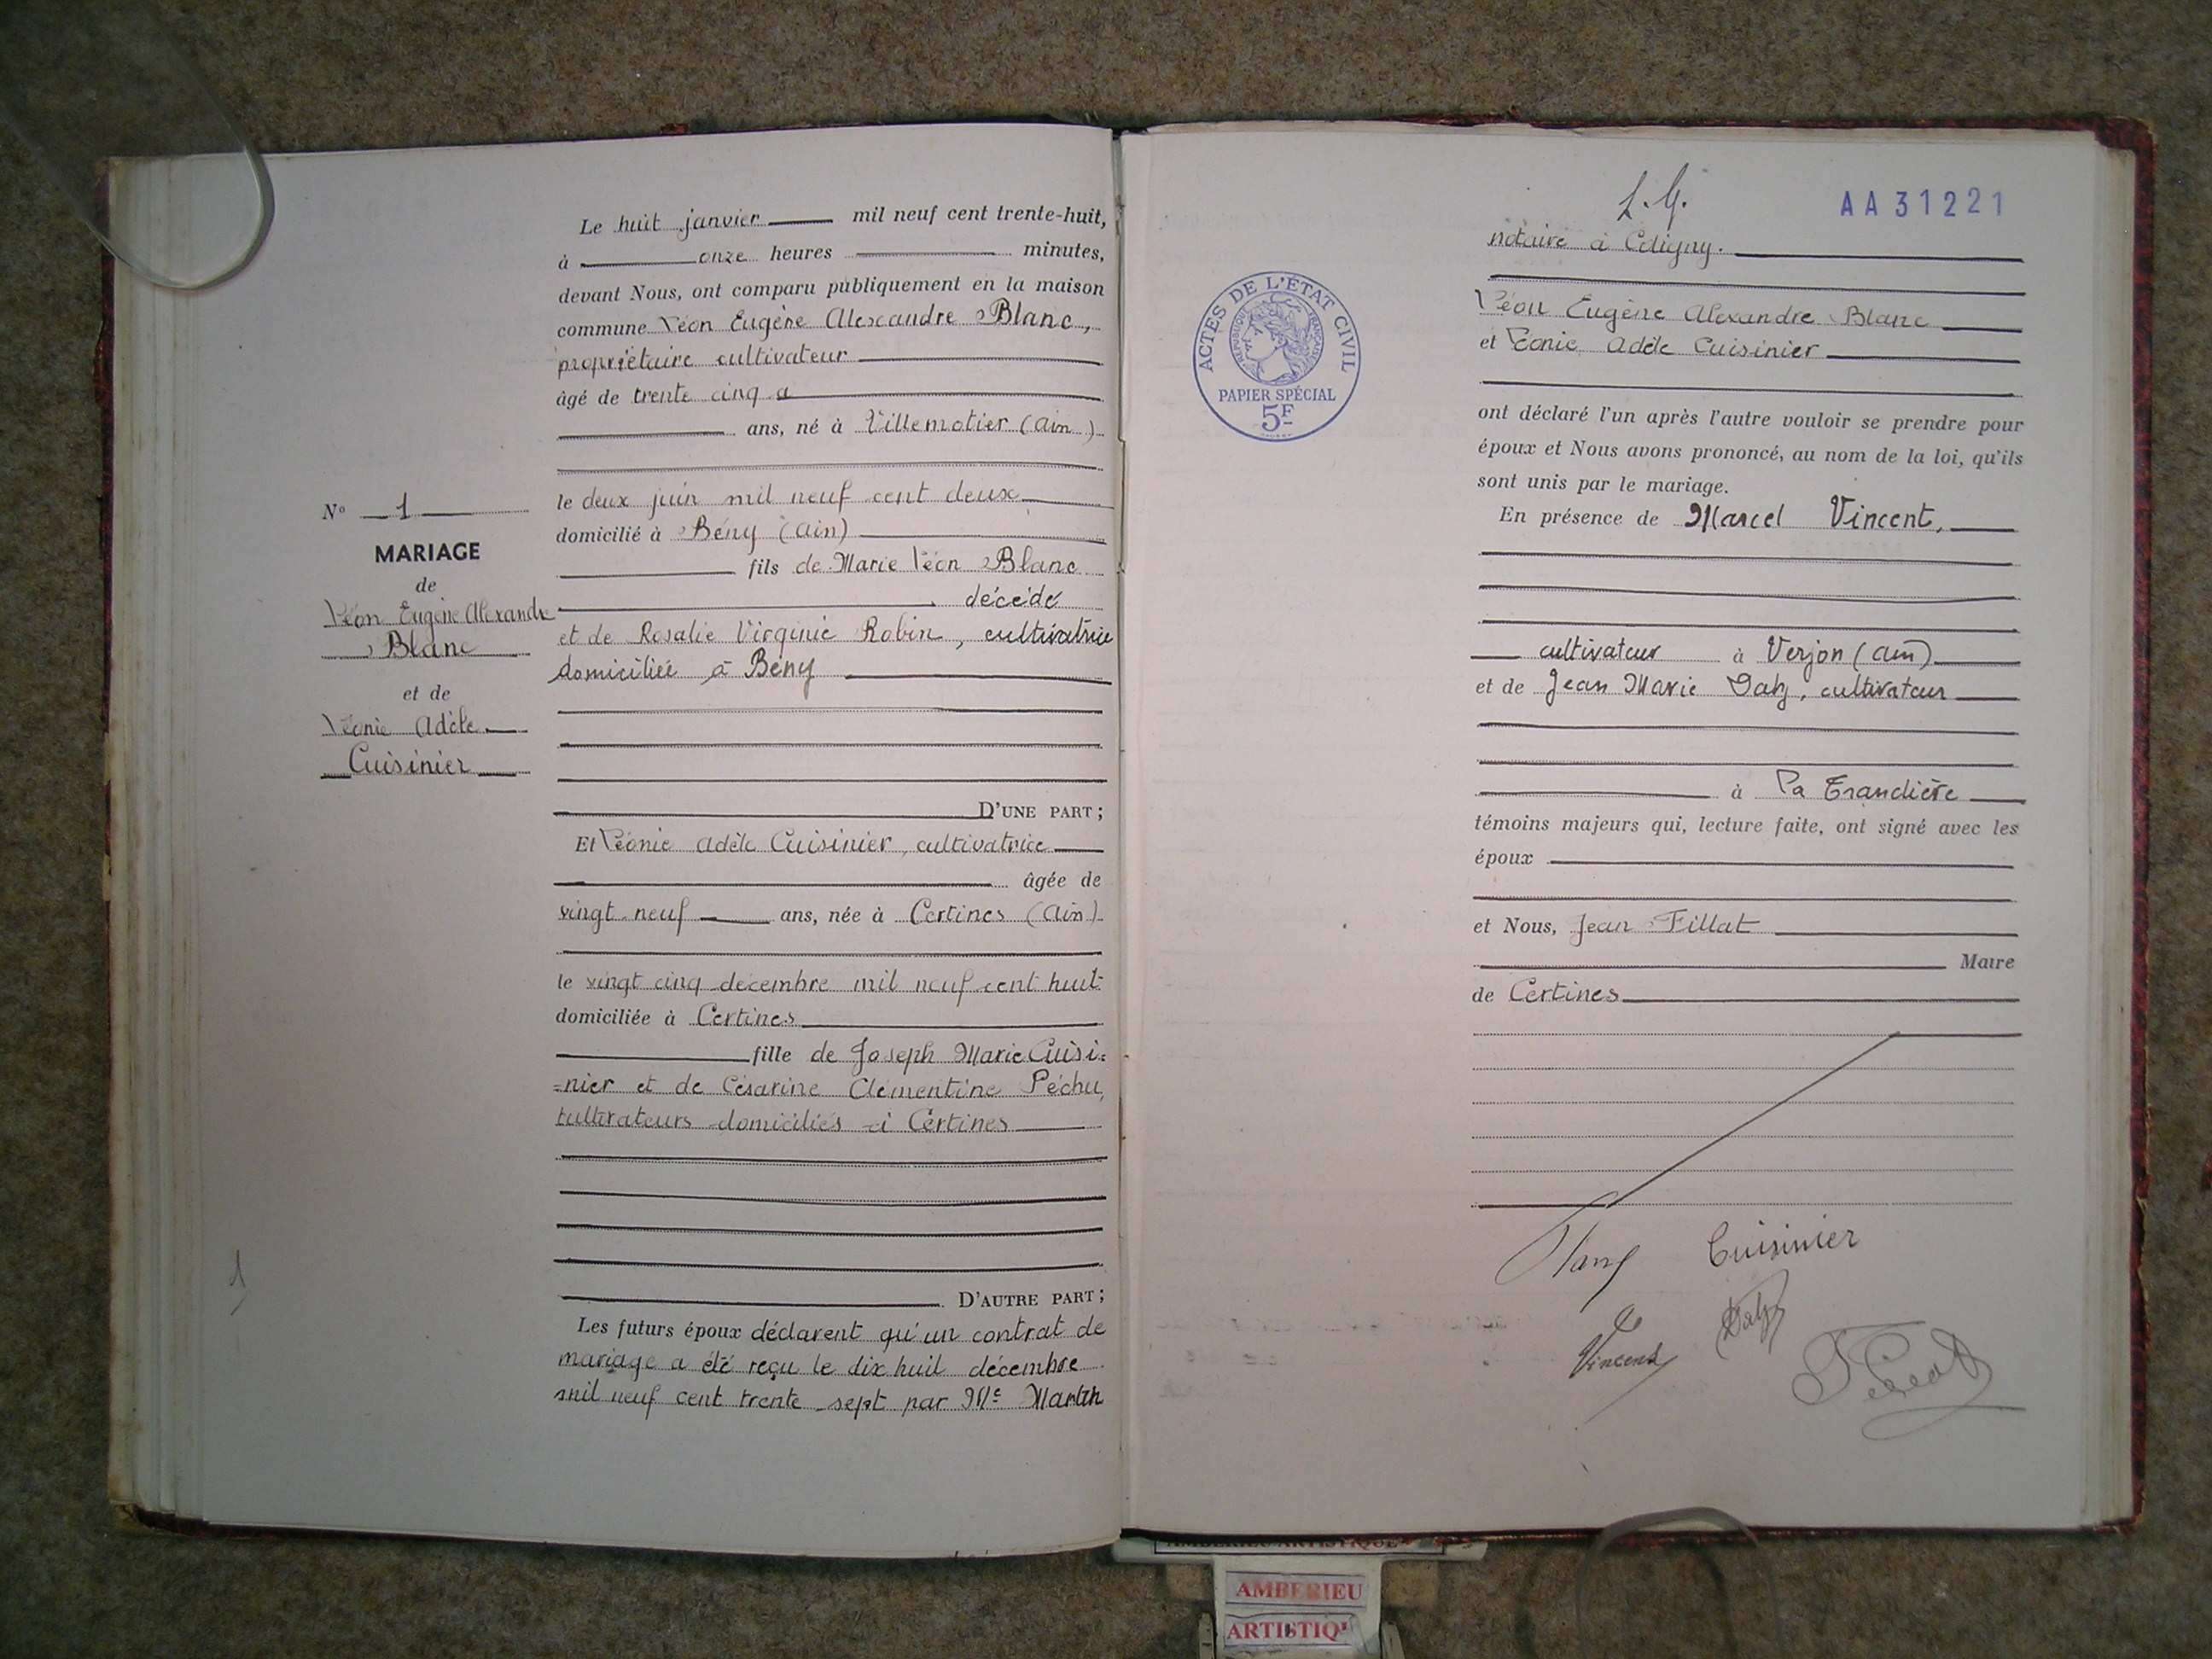 Le huit janvier mil neuf cent trente-huit,
à onze heures minutes,
devant Nous, ont comparu publiquement en la maison
commune Léon Eugène Alexandre Blanc,
propriétaire cultivateur
âgé de trente cinq a
ans, né à Villemotier (Ain)
le deux juin mil neuf cent deux
domicilié à Bény (Ain)
fils de Marie Léon Blanc
décédé
et de Rosalie Virginie Robin, cultivatrice
domiciliée à Bény
D'UNE PART ;
Et Léonie Adèle Cuisinier, cultivatrice
âgée de
vingt-neuf ans, née à Certines (Ain)
le vingt cinq décembre mil neuf cent huit
domiciliée à Certines
fille de Joseph Marie Cuisi=
=nier et de Césarine Clémentine Péchu,
cultivateurs domiciliés à Certines
D'AUTRE PART ;
Les futurs époux déclarent qu'un contrat de
mariage a été reçu le dix huit décembre
mil neuf cent trente sept par Me Martin
N° 1
MARIAGE
de
Léon Eugène Alexandre
Blanc
et de
Léonie Adèle
Cuisinier
1
AA31221
notaire à Coligny.
Léon Eugène Alexandre Blanc
et Léonie Adèle Cuisinier
ont déclaré l'un après l'autre vouloir se prendre pour
époux et Nous avons prononcé, au nom de la loi, qu'ils
sont unis par le mariage.
En présence de Marcel Vincent,
cultivateur à Verjon (Ain)
et de Jean Marie Daty, cultivateur
à La Tranclière
témoins majeurs qui, lecture faite, ont signé avec les
époux
et Nous, Jean Fillat
Maire
de Certines
Blanc Cuisinier
Vincent Daty
ACTES DE L'ÉTAT CIVIL
RÉPUBLIQUE FRANÇAISE
PAPIER SPÉCIAL
5F
AMBERIEU ARTISTIQUE
AMBERIEU
ARTISTIQ